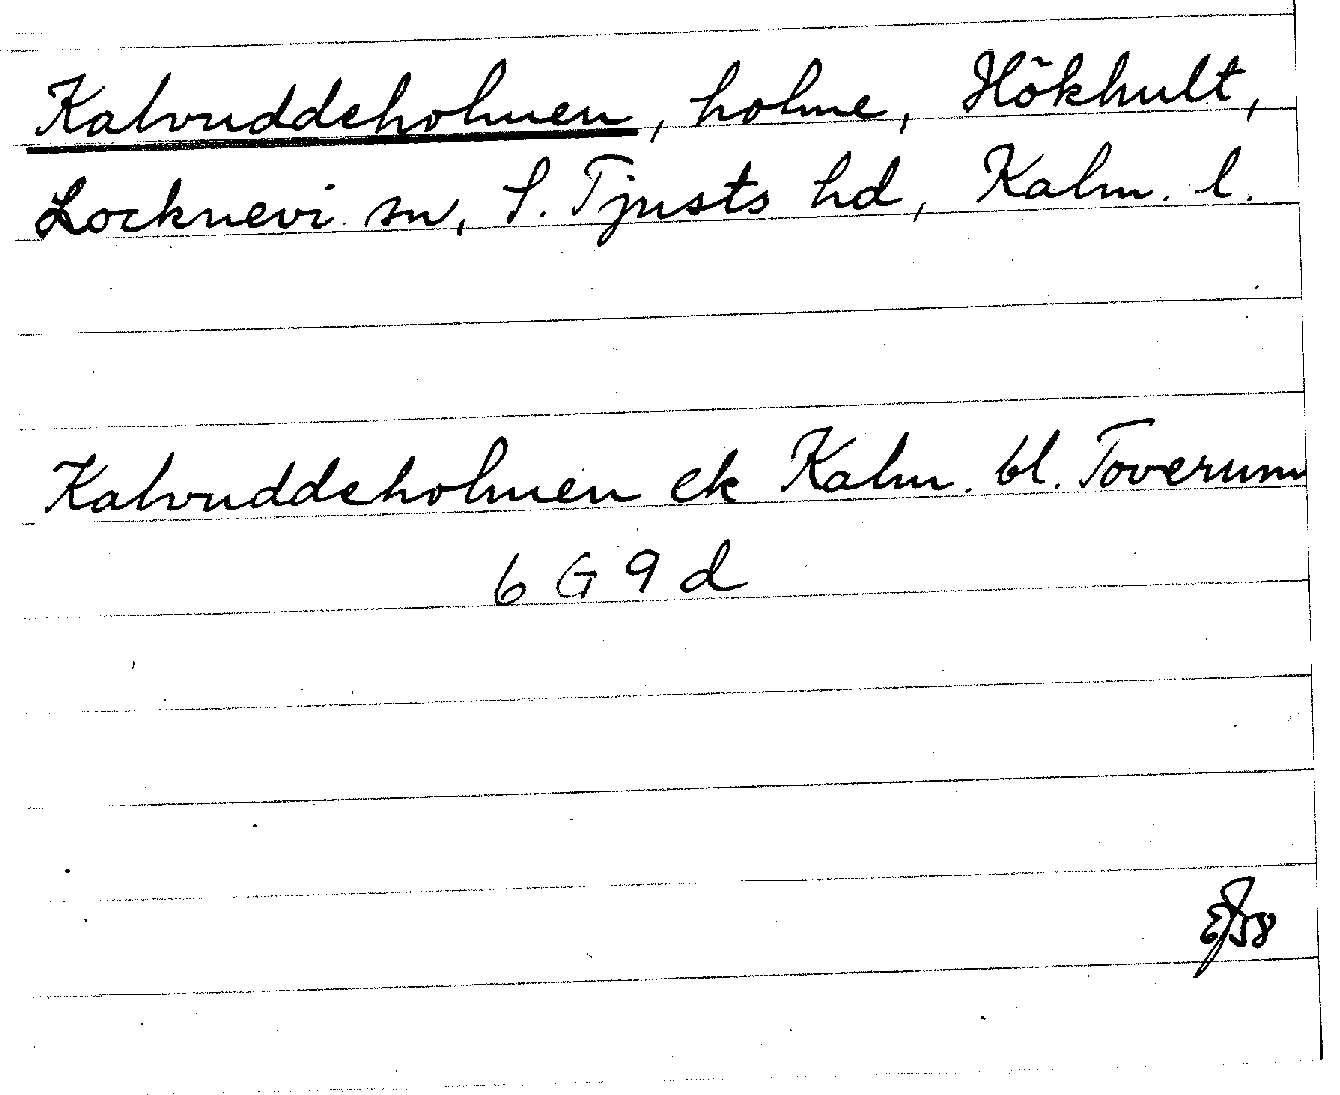 Kalvuddeholmen, holme, Hökhult,
Locknevi sn, S. Tjusts hd, Kalm. l.
Kalvuddeholmen ek Kalm. bl. Toverum
6 G 9 d